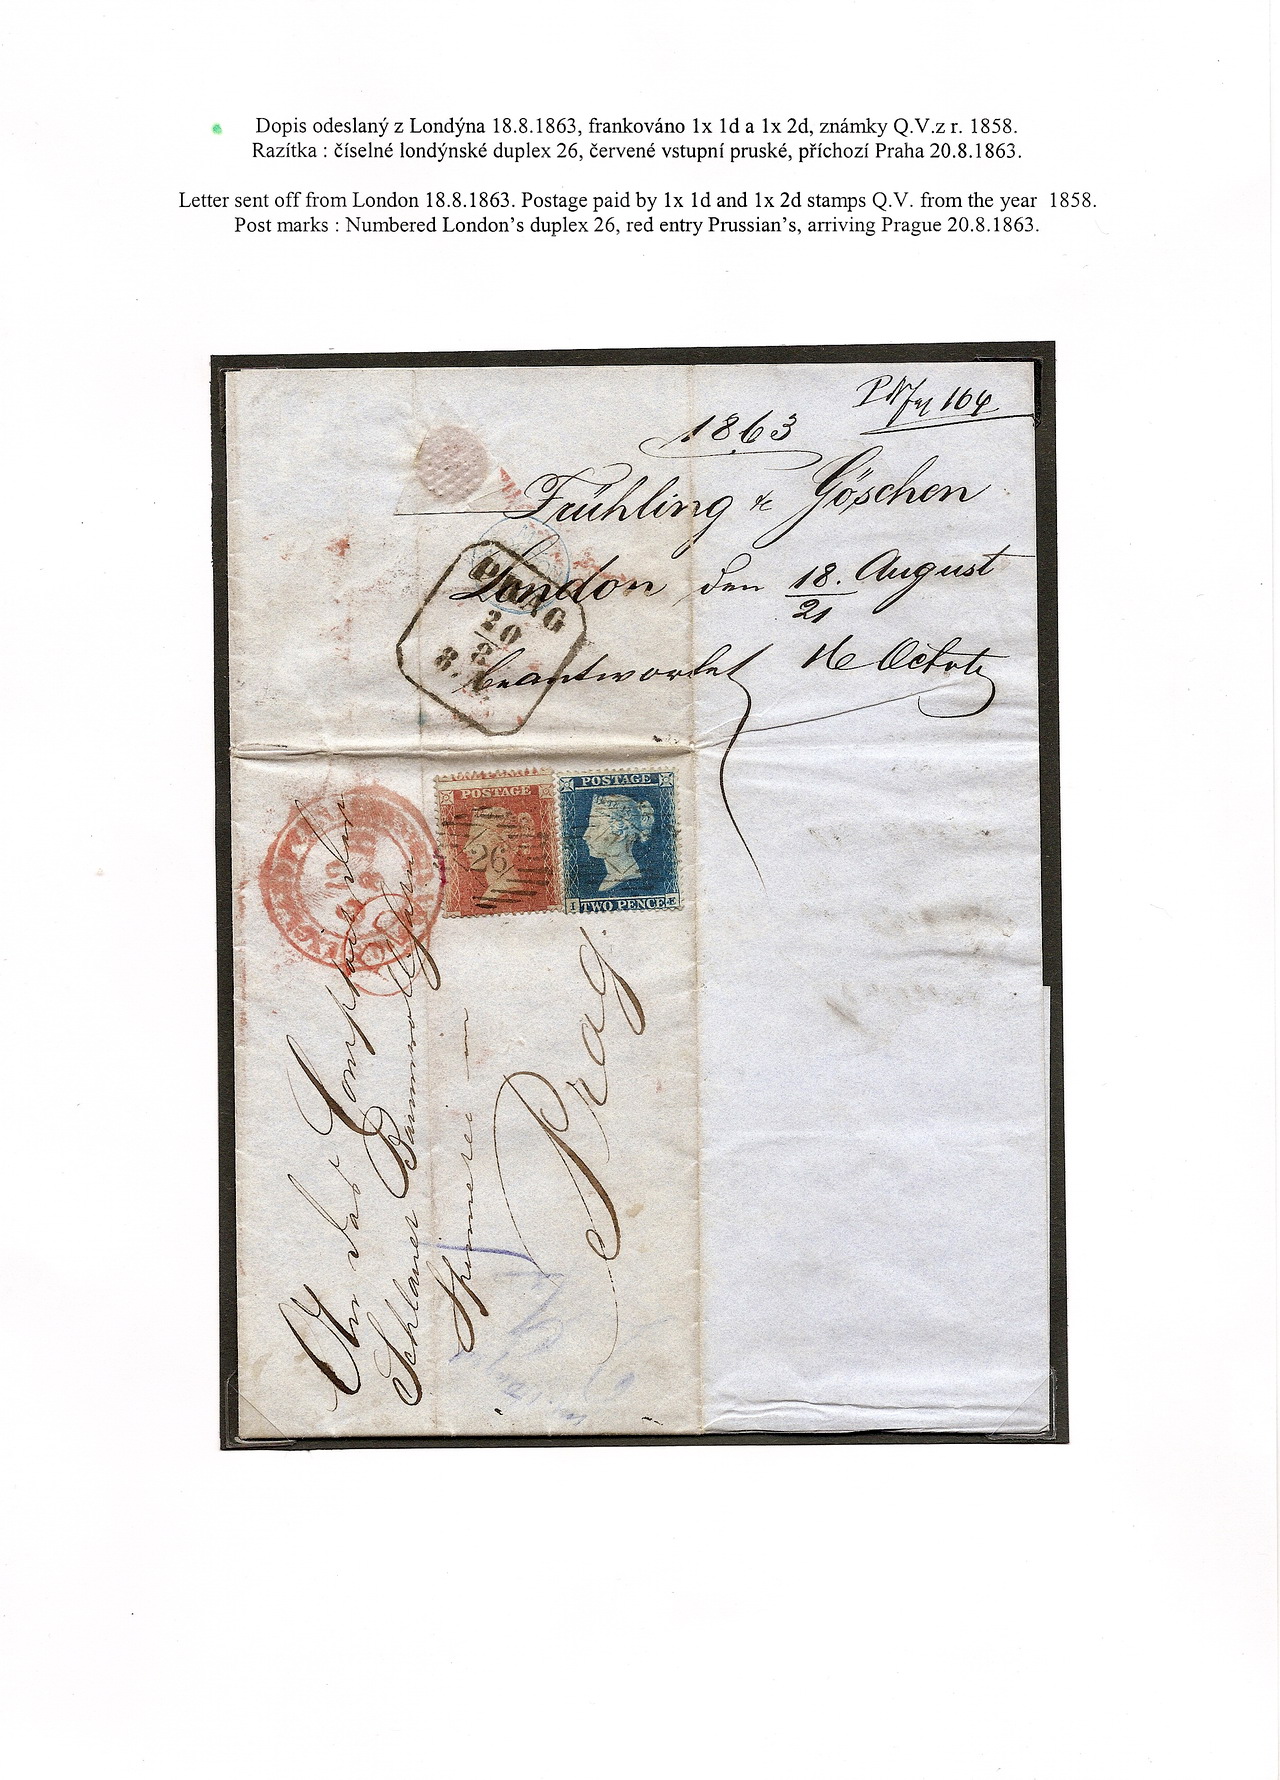 Dopis odeslaný z Londýna 18.8.1863, frankováno 1x 1d a 1x 2d, známky Q.V.z r. 1858.
Razítka : číselné londýnské duplex 26, červené vstupní pruské, příchozí Praha 20.8.1863.
Letter sent off from London 18.8.1863. Postage paid by 1x 1d and 1x 2d stamps Q.V. from the year 1858.
Post marks : Numbered London's duplex 26, red entry Prussian's, arriving Prague 20.8.1863.
164
1863
Frühling & Göschen
London den 18. August
21
beantwortet 16
PRAG
20
8
POSTAGE
26
POSTAGE
I TWO PENCE E
An das
Schlaner Baumwoll
Spinnerei in
Prag.